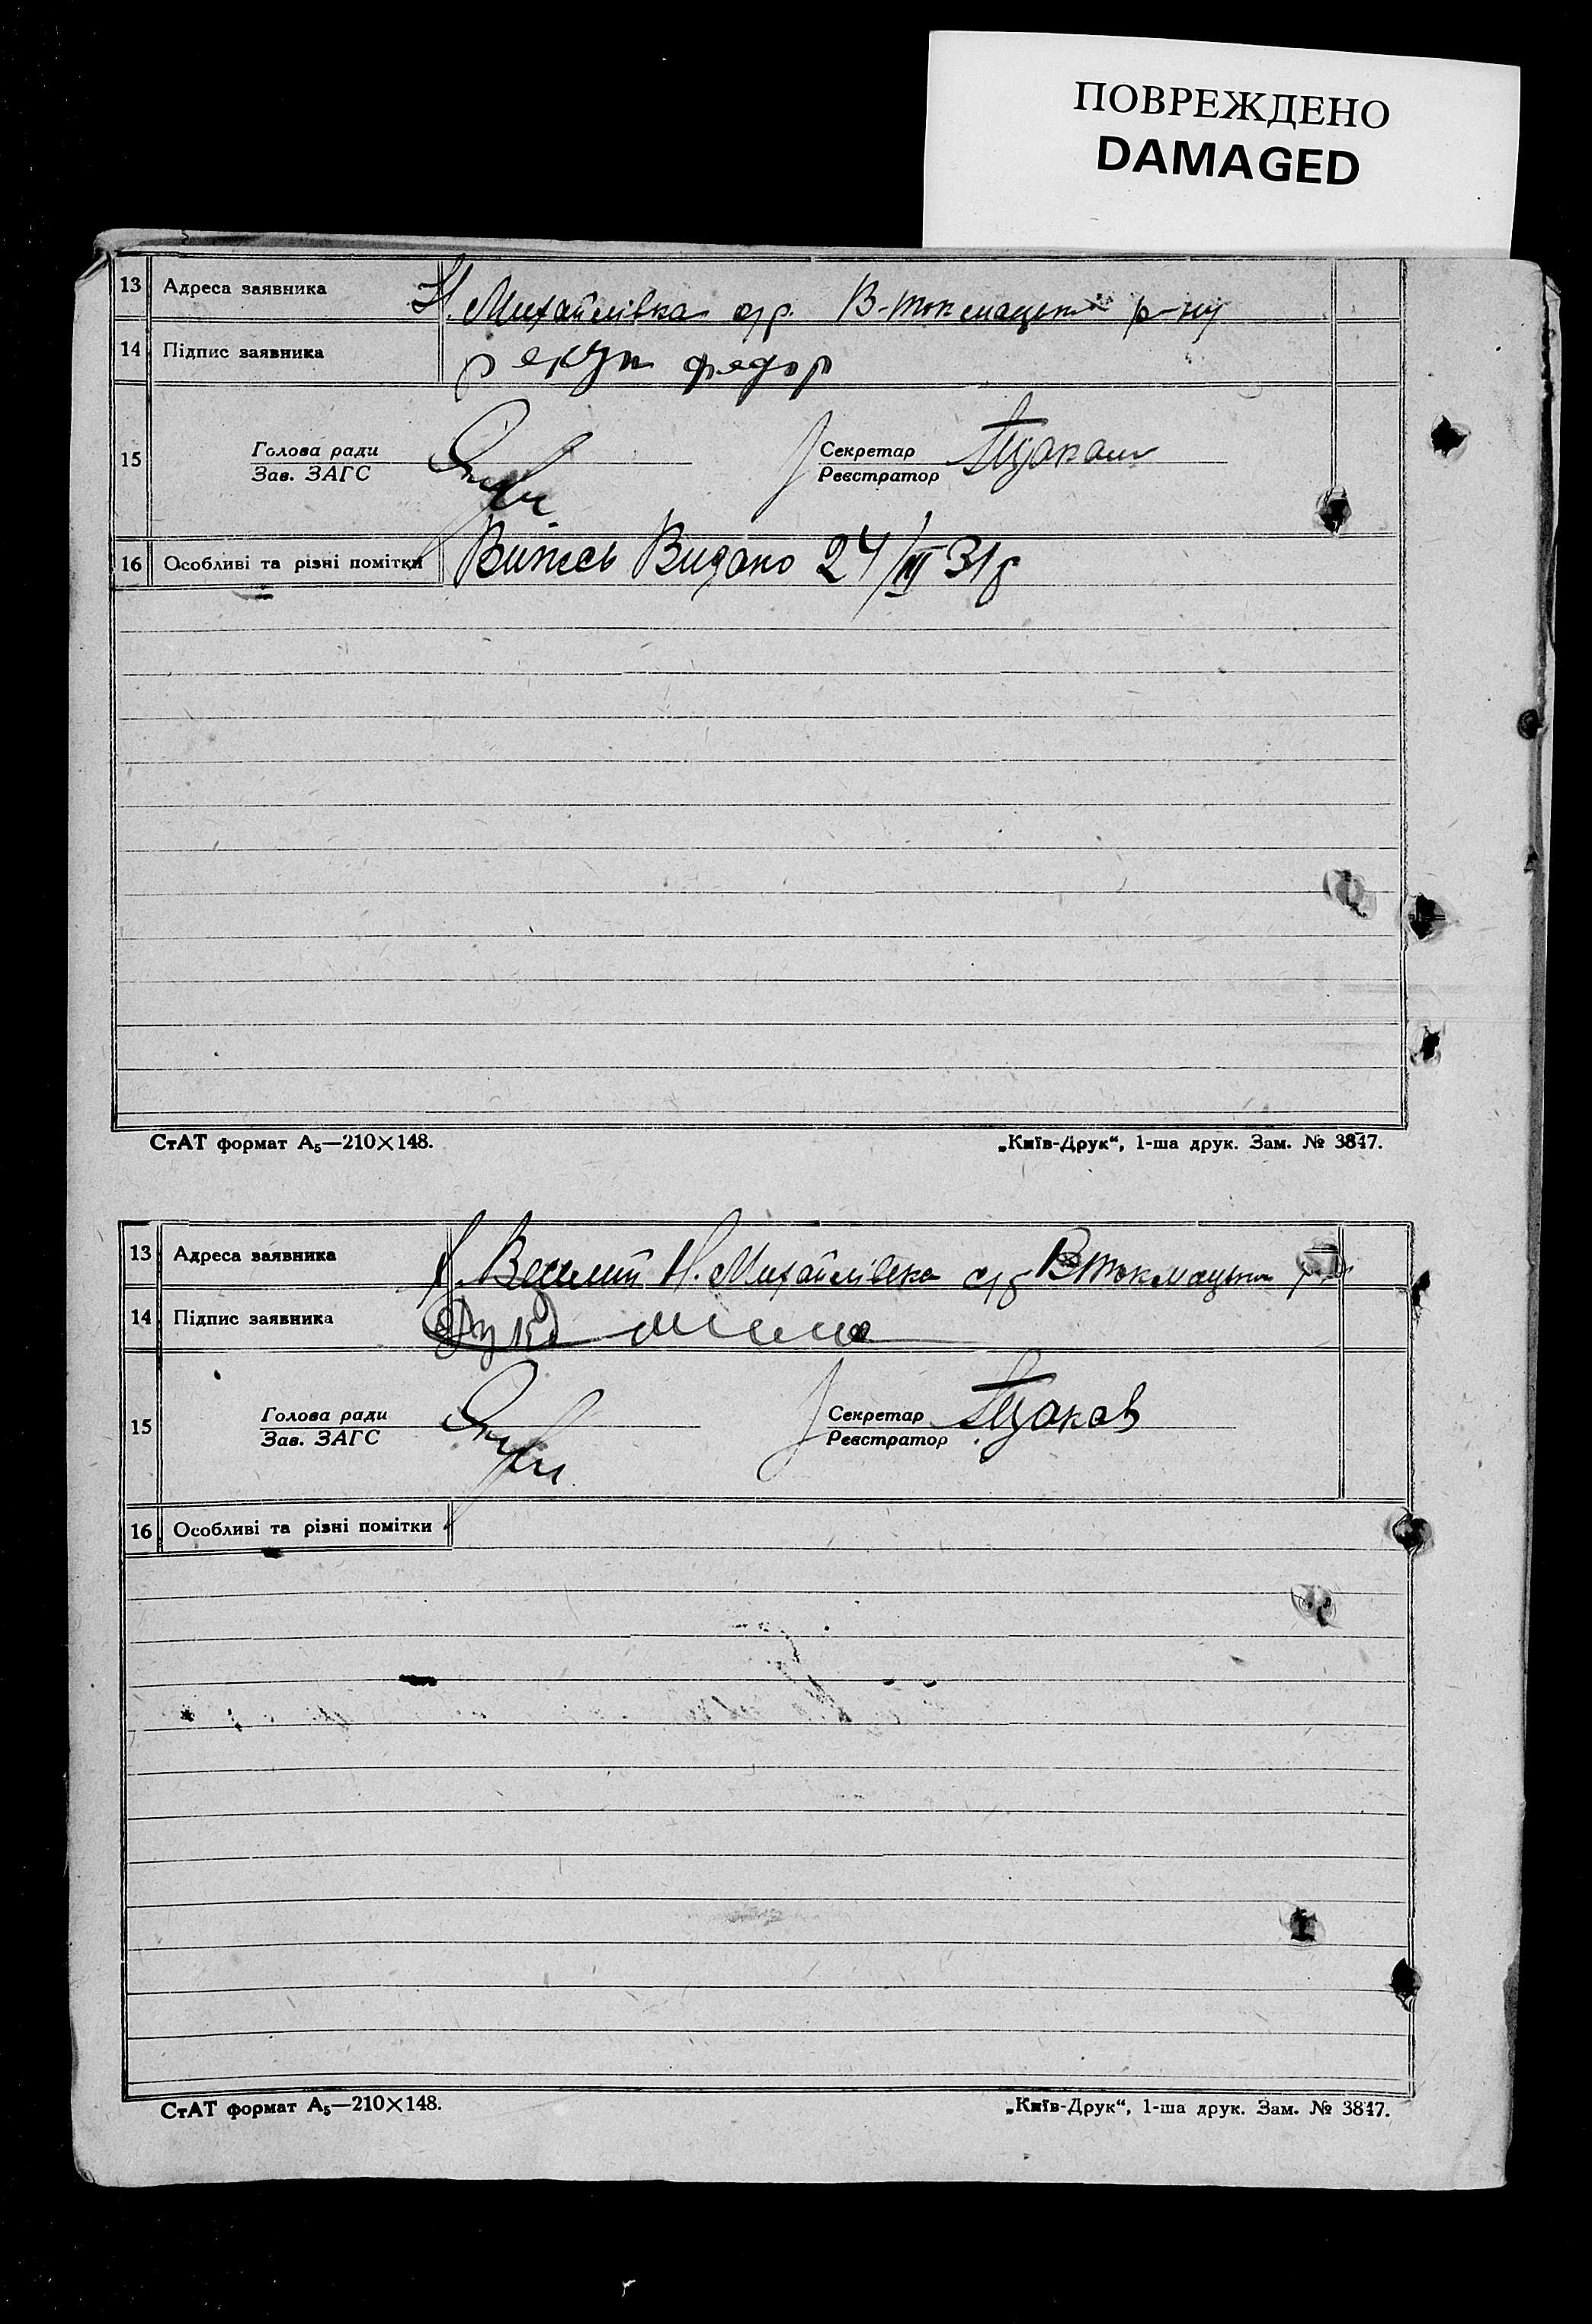 ПОВРЕЖДЕНО
DAMAGED
13 Адреса заявника Н. Михайлівка с/р. В-Токмацьк. р-ну
14 Підпис заявника рекун федор
15 Голова ради Секретар
Зав. ЗАГС Реєстратор
16 Особливі та різні помітки Витяг Видано 24/III 31 р
СтАТ формат А₅—210×148. „Київ-Друк“, 1-ша друк. Зам. № 3847.
13 Адреса заявника Н. Михайлівка с/р ВТокмацьк
14 Підпис заявника
15 Голова ради Секретар
Зав. ЗАГС Реєстратор
16 Особливі та різні помітки
СтАТ формат А₅—210×148. „Київ-Друк“, 1-ша друк. Зам. № 3847.